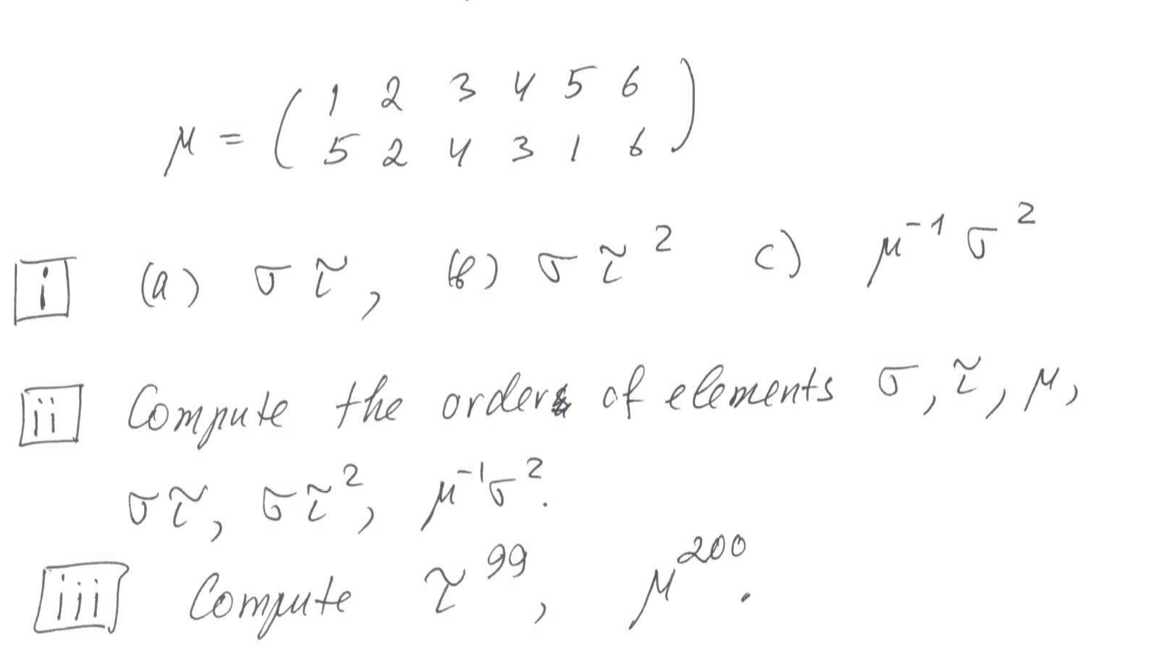 μ = ( 1 2 3 4 5 6 )
5 2 4 3 1 6
i (a) σ τ, (b) σ τ² c) μ⁻¹ σ²
ii Compute the orders of elements σ, τ, μ,
στ, στ², μ⁻¹σ².
iii Compute τ⁹⁹, μ²⁰⁰.